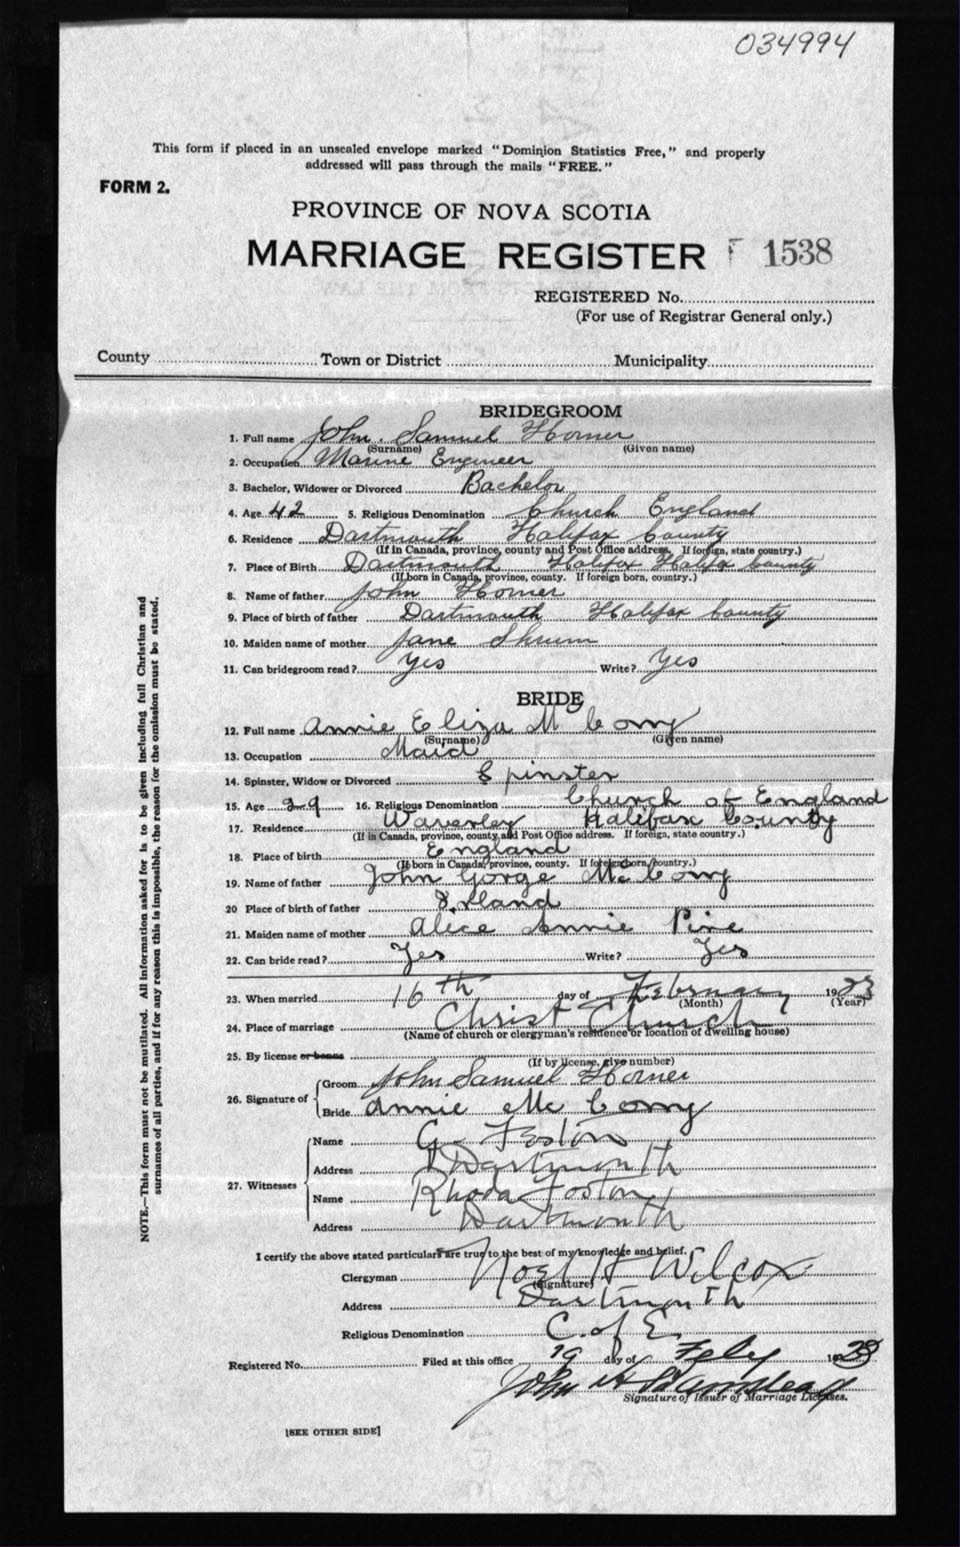 034994
This form if placed in an unsealed envelope marked "Dominion Statistics Free," and properly
addressed will pass through the mails "FREE."
FORM 2.
PROVINCE OF NOVA SCOTIA
MARRIAGE REGISTER F 1538
REGISTERED No.
(For use of Registrar General only.)
County Town or District Municipality
BRIDEGROOM
1. Full name John Samuel Horner
(Surname) (Given name)
2. Occupation Marine Engineer
3. Bachelor, Widower or Divorced Bachelor
4. Age 42 5. Religious Denomination Church England
6. Residence Dartmouth Halifax County
(If in Canada, province, county and Post Office address. If foreign, state country.)
7. Place of Birth Dartmouth Halifax Halifax County
(If born in Canada, province, county. If foreign born, country.)
8. Name of father John Horner
9. Place of birth of father Dartmouth Halifax County
10. Maiden name of mother Jane Shrum
11. Can bridegroom read? Yes Write? Yes
BRIDE
12. Full name Annie Eliza McComy
(Surname) (Given name)
13. Occupation Maid
14. Spinster, Widow or Divorced Spinster
15. Age 29 16. Religious Denomination Church of England
17. Residence Waverley Halifax County
(If in Canada, province, county and Post Office address. If foreign, state country.)
18. Place of birth England
(If born in Canada, province, county. If foreign born, country.)
19. Name of father John Gorge McComy
20 Place of birth of father
21. Maiden name of mother Alice Annie Pine
22. Can bride read? Yes Write? Yes
23. When married 16th day of February 1923
(Month) (Year)
24. Place of marriage Christ Church
(Name of church or clergyman's residence or location of dwelling house)
25. By license or banns
(If by license, give number)
26. Signature of Groom John Samuel Horner
Bride Annie McComy
27. Witnesses
Name G. Foston
Address Dartmouth
Name Rhoda Foston
Address Dartmouth
I certify the above stated particulars are true to the best of my knowledge and belief.
Clergyman Noel H Wilcox
(Signature)
Address Dartmouth
Religious Denomination C. of E.
Registered No. Filed at this office 19 day of Feby 1923
John H
Signature of Issuer of Marriage Licenses.
[SEE OTHER SIDE]
NOTE.—This form must not be mutilated. All information asked for is to be given including full Christian and
surnames of all parties, and if for any reason this is impossible, the reason for the omission must be stated.